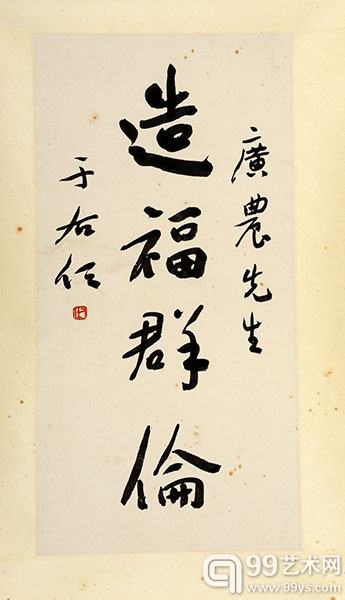 廣農先生
造福群倫
于右任
99艺术网
www.99ys.com